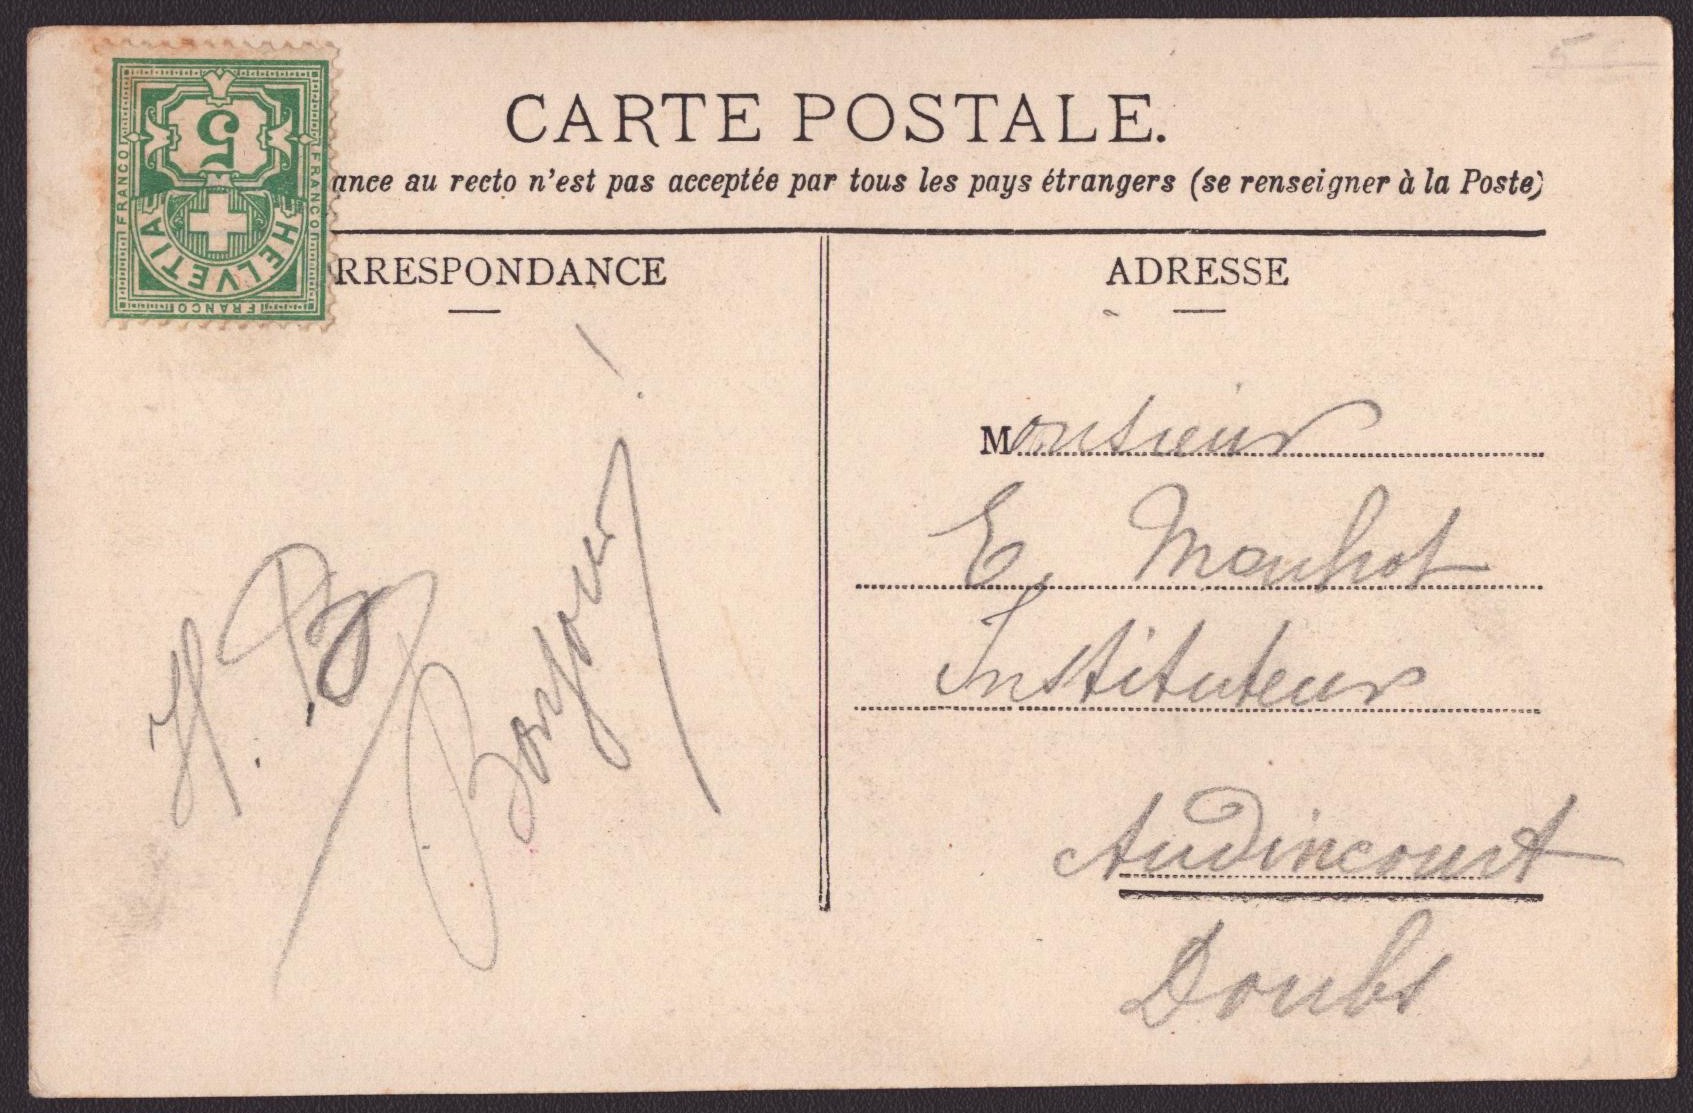 CARTE POSTALE.
ance au recto n'est pas acceptée par tous les pays étrangers (se renseigner à la Poste)
5
FRANCO
FRANCO
HELVETIA
FRANCO
RRESPONDANCE
Bonjour !
H. B
ADRESSE
Monsieur
E. Mauhot
Instituteur
Audincourt
Doubs
5